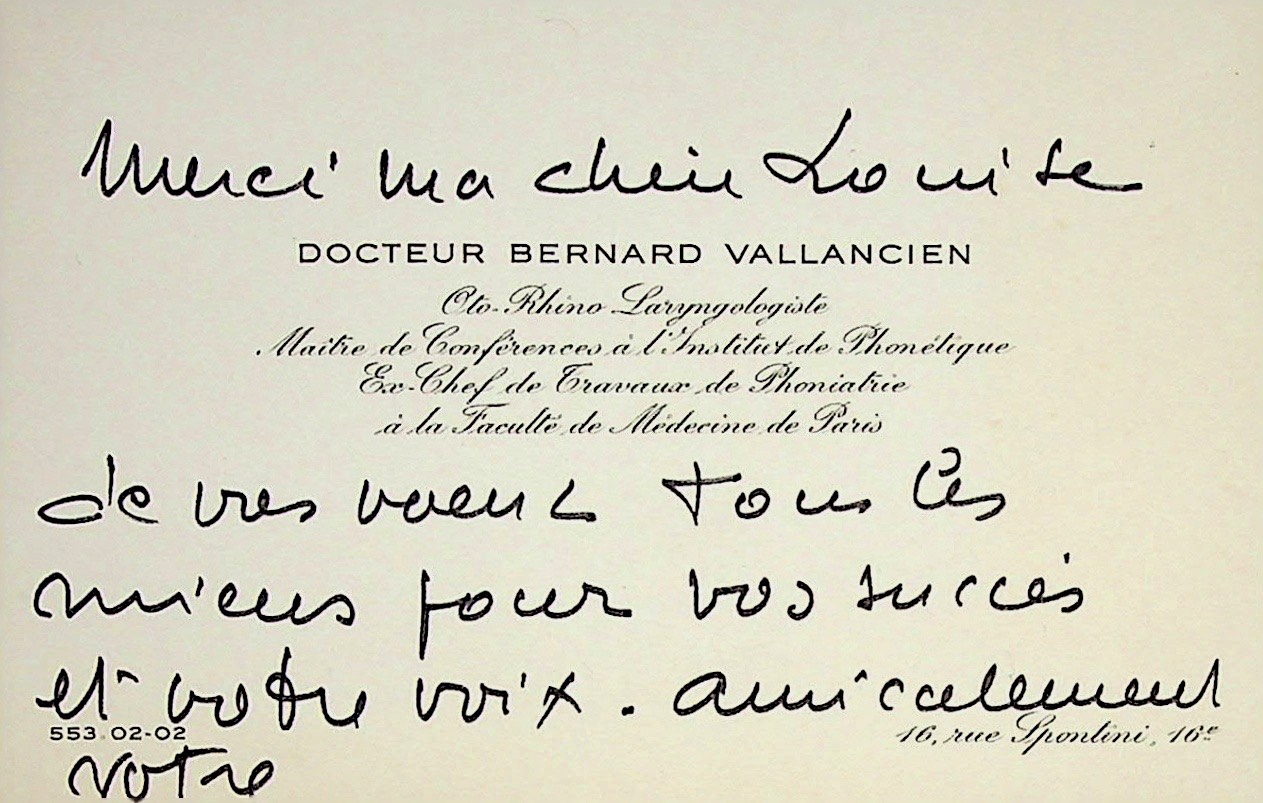 Merci ma chère Louise
DOCTEUR BERNARD VALLANCIEN
Oto-Rhino Laryngologiste
Maître de Conférences à l'Institut de Phonétique
Ex-Chef de Travaux de Phoniatrie
à la Faculté de Médecine de Paris
de vos voeux tous les
miens pour vos succès
et votre voix. amicalement
553.02-02
16, rue Spontini, 16e
votre